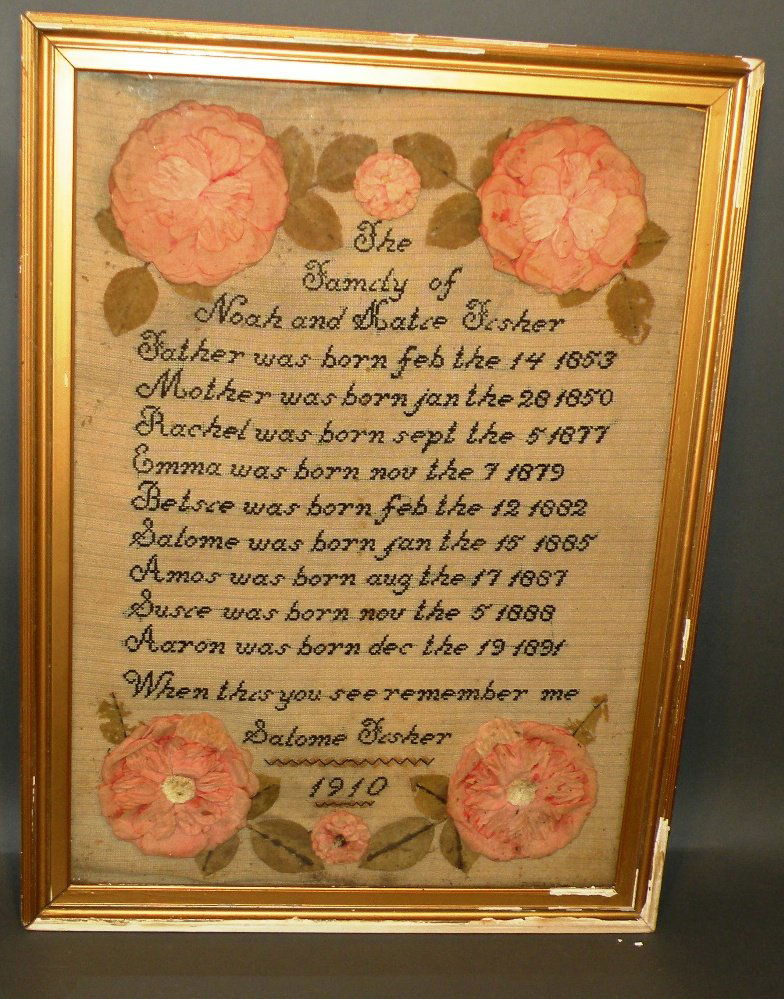 The
Family of
Noah and Katie Fisher
Father was born feb the 14 1853
Mother was born jan the 28 1850
Rachel was born sept the 5 1877
Emma was born nov the 7 1879
Betsie was born feb the 12 1882
Salome was born jan the 15 1885
Amos was born aug the 17 1887
Susie was born nov the 5 1888
Aaron was born dec the 19 1891
When this you see remember me
Salome Fisher
1910